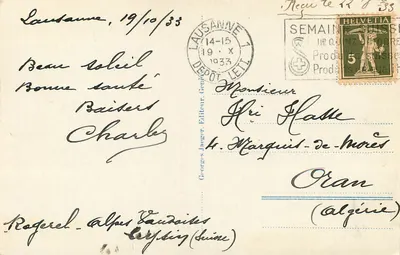 Lausanne, 19/10/33
Beau soleil
Bonne santé
Baisers
Charley
Reçu le 22
33
LAUSANNE 1
14-15
19. X
1933
DEP. LETT.
SEMAINE
HELVETIA
5
Georges Jaeger, Editeur, Genève
Monsieur
Hri Hasse
4. Marquis-de-Morès
Oran
(Algérie)
Alpes Vaudoises
Leysin (Suisse)